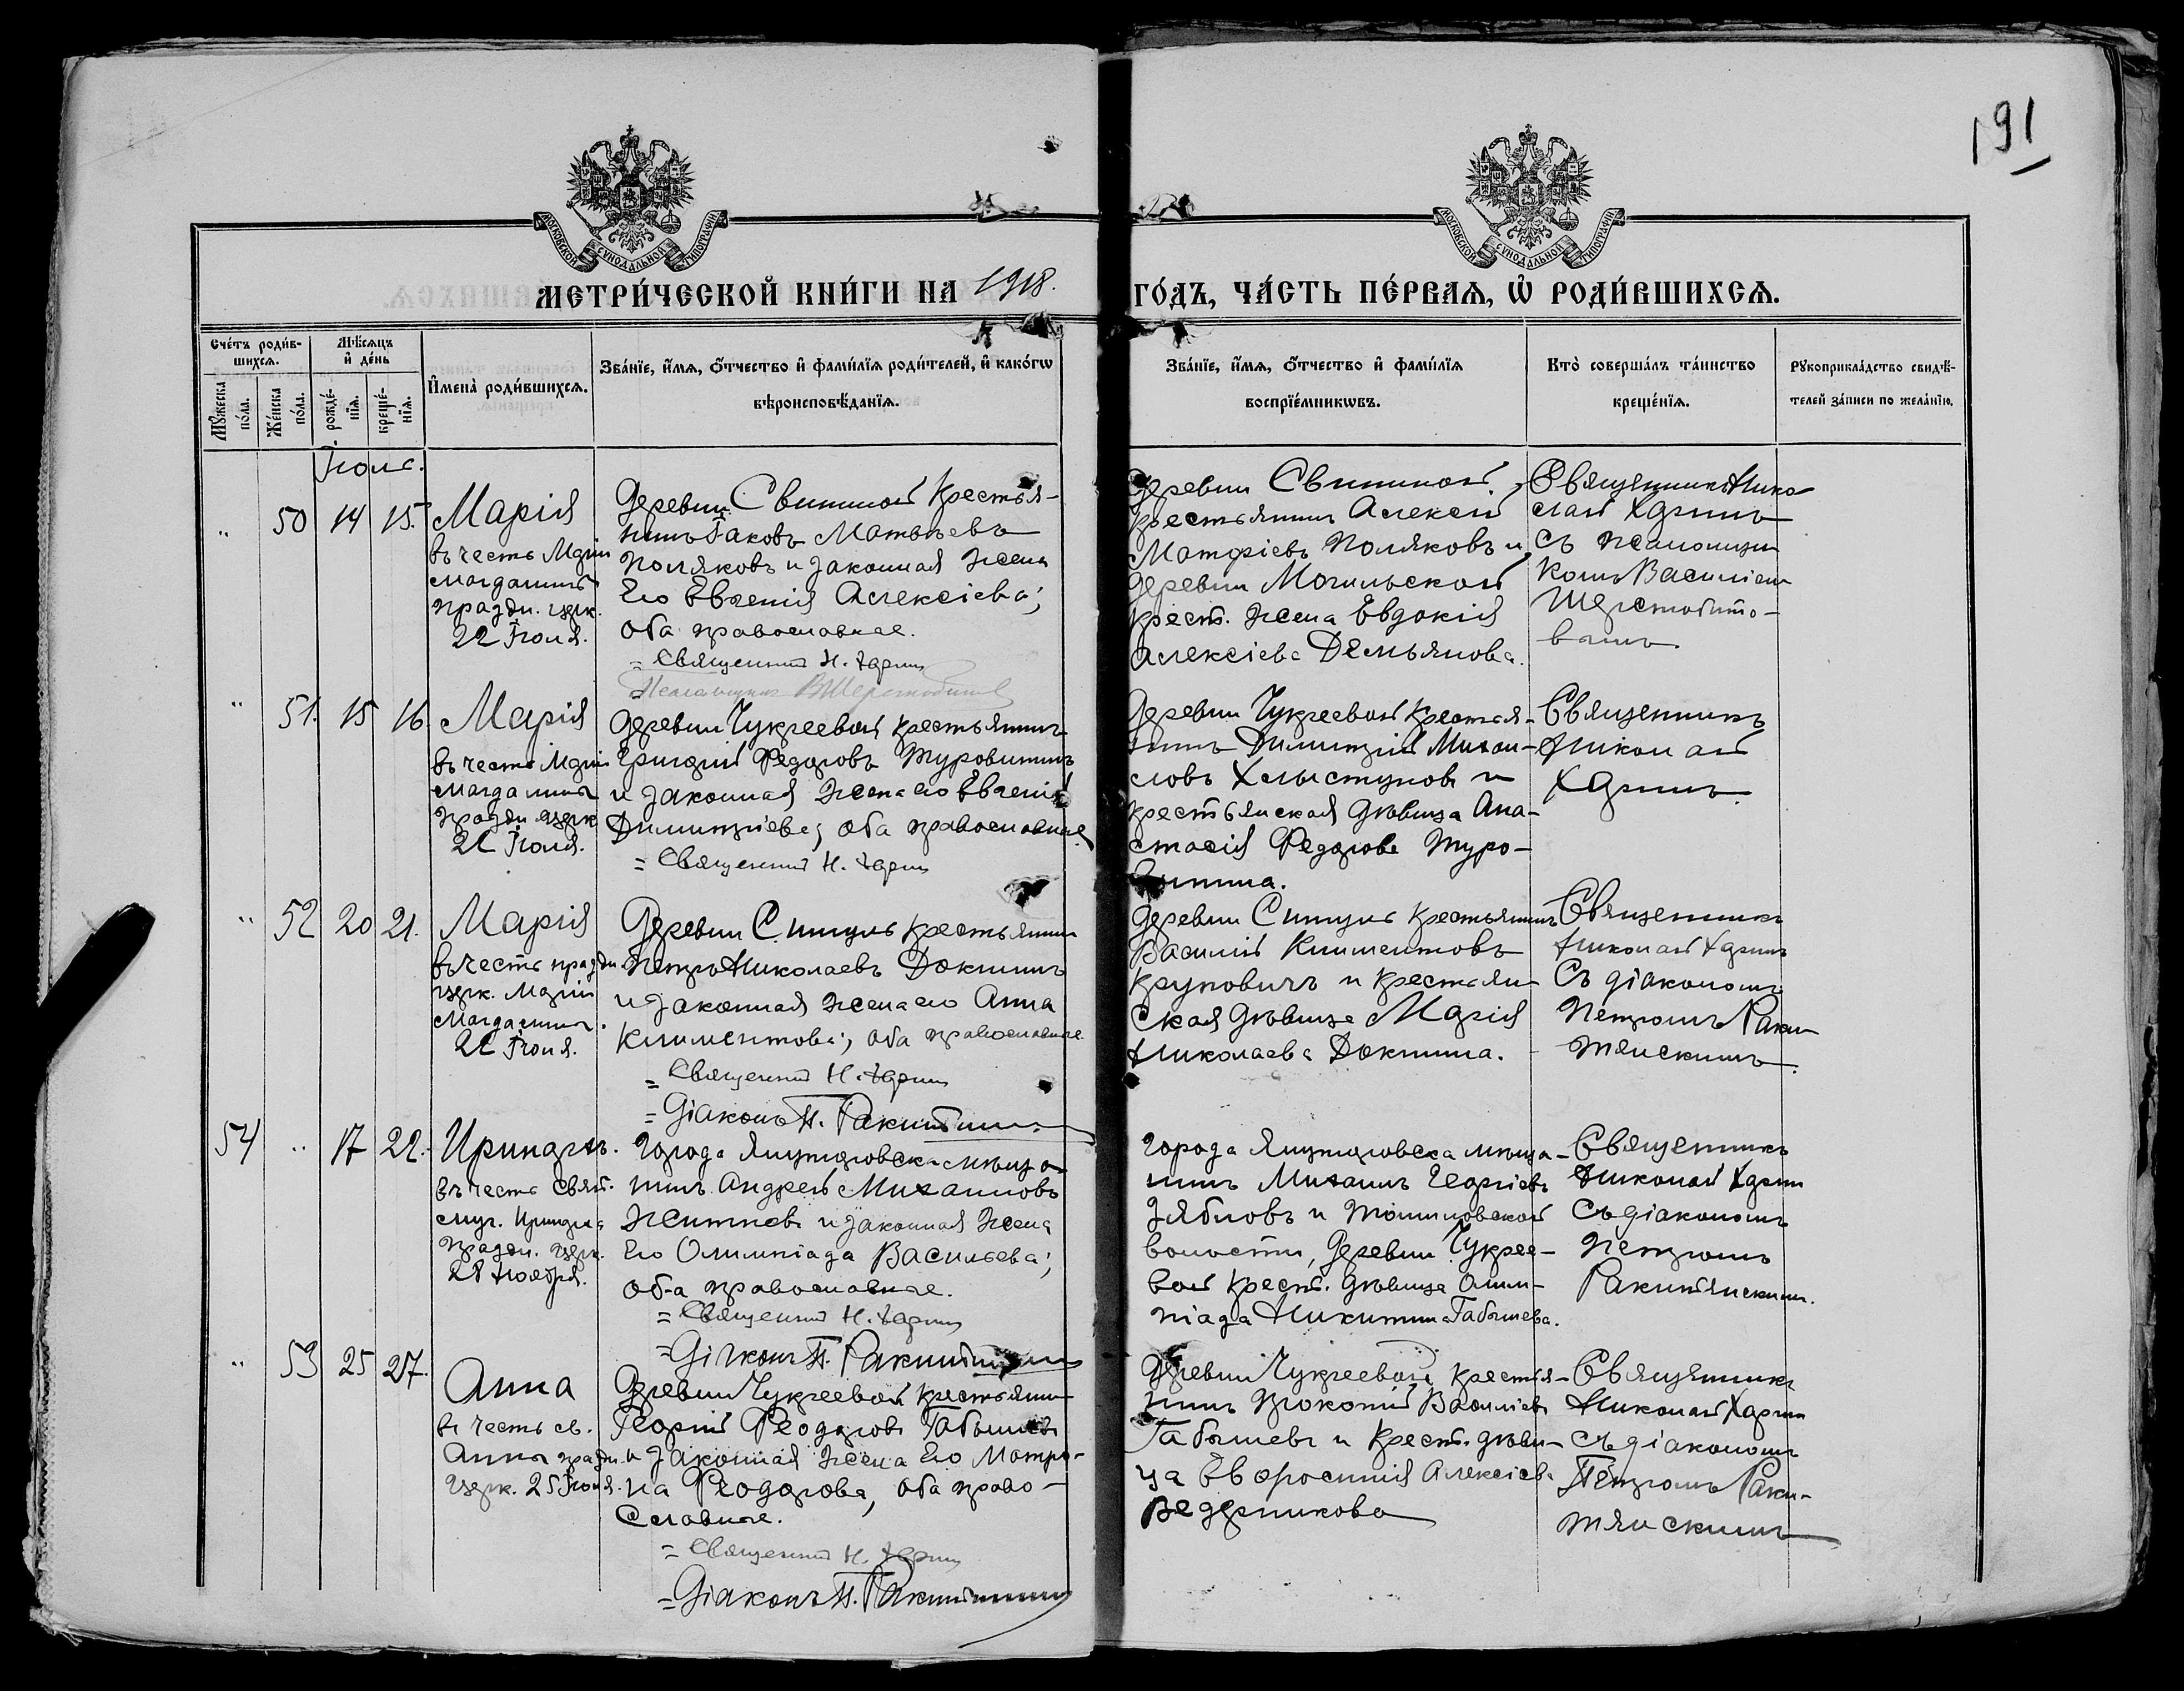 191
МОСКОВСКОЙ СѴНОДАЛЬНОЙ ТИПОГРАФІИ
МОСКОВСКОЙ СѴНОДАЛЬНОЙ ТИПОГРАФІИ
МЕТРИ́ЧЕСКОЙ КНИ́ГИ НА 1918. ГО́ДЪ, ЧА́СТЬ ПЕ́РВАЯ, Ѽ РОДИ́ВШИХСЯ.
Сче́тъ роди́в-
шихся.
Мꙋ́жеска
по́ла.
Же́нска
по́ла.
Мѣ́сяцъ
и҆ де́нь
рожде́-
нїя.
креще́-
нїя.
И҆мена̀ роди́вшихся.
Зва́нїе, и҆́мя, ѻ҆́тчество и҆ фами́лїя роди́телей, и҆ како́гѡ
вѣроисповѣ́данїя.
Зва́нїе, и҆́мя, ѻ҆́тчество и҆ фами́лїя
воспрїе́мникѡвъ.
Кто̀ соверша́лъ та́инство
креще́нїя.
Рꙋкоприкла́дство свидѣ́-
телей за́писи по жела́нїю.
Іюль.
" 50 14 15.
Марія
въ честь Маріи
Магдалины
праздн. церк.
22 Іюля.
Деревни Свининой крестья-
нинъ Іаковъ Матвѣевъ
Поляковъ и законная жена
его Евгенія Алексіева;
оба православные.
= Священникъ Н. Харин
= Псаломщикъ В Шерстобитов
Деревни Свининой
крестьянинъ Алексей
Матфіевъ Поляковъ и
деревни Могильской
крест. жена Евдокія
Алексіева Демьянова.
Священникъ Нико-
лай Харинъ
съ псаломщи
комъ Василіемъ
Шерстобито-
вымъ.
" 51. 15 16.
Марія
въ честь Маріи
Магдалины
праздн. церк
22 Іюля.
Деревни Чукреевой крестьянинъ
Григорій Федоровъ Туровининъ
и законная жена его Евгенія
Димитріева; оба православные
= Священникъ Н. Харин
Деревни Чукреевой крестья-
нинъ Димитрій Михаи-
ловъ Хлыстуновъ и
крестьянская дѣвица Ана-
стасія Федорова Туро-
винина.
Священникъ
Николай
Харинъ.
" 52 20 21.
Марія
въ честь праздн.
церк. Маріи
Магдалины.
22 Іюля.
Деревни Синуль крестьянин
Петръ Николаевъ Докшинъ
и законная жена его Анна
Климентова; оба православные
= Священникъ Н. Харин
= Діаконъ П. Ракитянскій
Деревни Синуль крестьянинъ
Василій Климентовъ
Круповичъ и крестьян-
ская дѣвица Марія
Николаева Докшина.
Священникъ
Николай Харинъ
Съ діакономъ
Петромъ Раки-
тянскимъ.
54 " 17 22.
Иринархъ.
въ честь Свят.
муч. Иринарха
праздн. церк.
28 Ноября.
Города Ялуторовска мѣща-
нинъ Андрей Михаиловъ
и законная жена
его Олимпіада Васильева;
оба православные.
= Священникъ Н. Харин
= Діаконъ П. Ракитянскій
Города Ялуторовска мѣща-
нинъ Михаилъ Георгіевъ
Зябловъ и
волости, деревни Чукрее-
вой крест. дѣвица Олим-
піада Никитина Габышева.
Священникъ
Николай Харин
Съ діакономъ
Петромъ
Ракитянскимъ.
" 53 25 27.
Анна
въ честь св.
Анны праздн.
церк. 25 Іюля.
Деревни Чукреевой крестьянин
Георгій Феодоровъ Габышевъ
и законная жена его Матро-
на Феодорова, оба право-
славные.
= Священникъ Н. Харин
= Діаконъ П. Ракитянскій
Деревни Чукреевой крестья-
нинъ Прокопій Василіевъ
Габышевъ и крест. дѣви-
ца Евфросинія Алексіева
Ведерникова
Священникъ
Николай Харин
съ діакономъ
Петромъ Раки-
тянскимъ